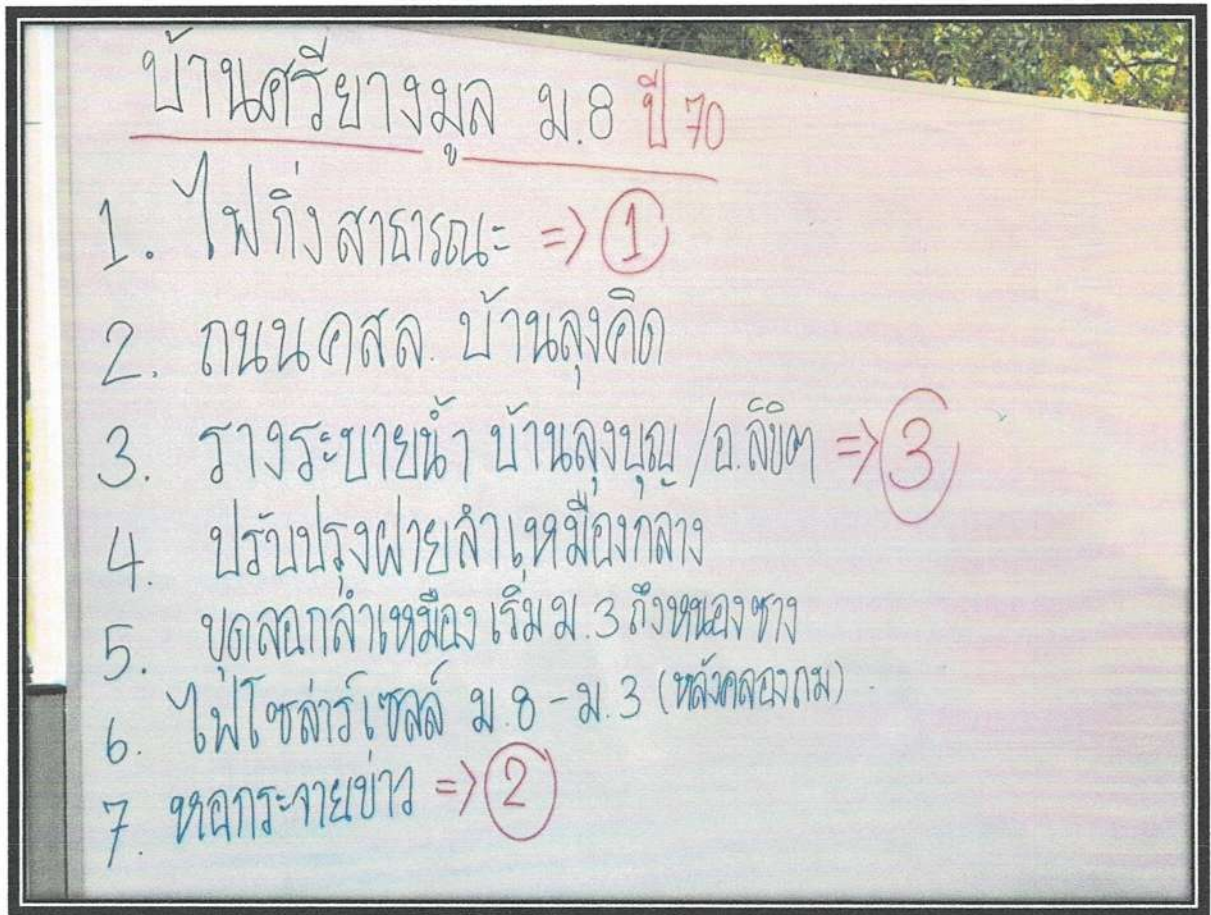 บ้านศรียางมูล ม.8 ปี 70
1. ไฟกิ่งสาธารณะ => 1
2. ถนน คสล. บ้านลุงคิด
3. รางระบายน้ำ บ้านลุงบุญ /อ.ลิขิต => 3
4. ปรับปรุงฝายลำเหมืองกลาง
5. ขุดลอกลำเหมือง เริ่ม ม.3 ถึงหนองซาง
6. ไฟโซล่าร์เซลล์ ม.8 - ม.3 (หลังคลองถม)
7. หอกระจายข่าว => 2